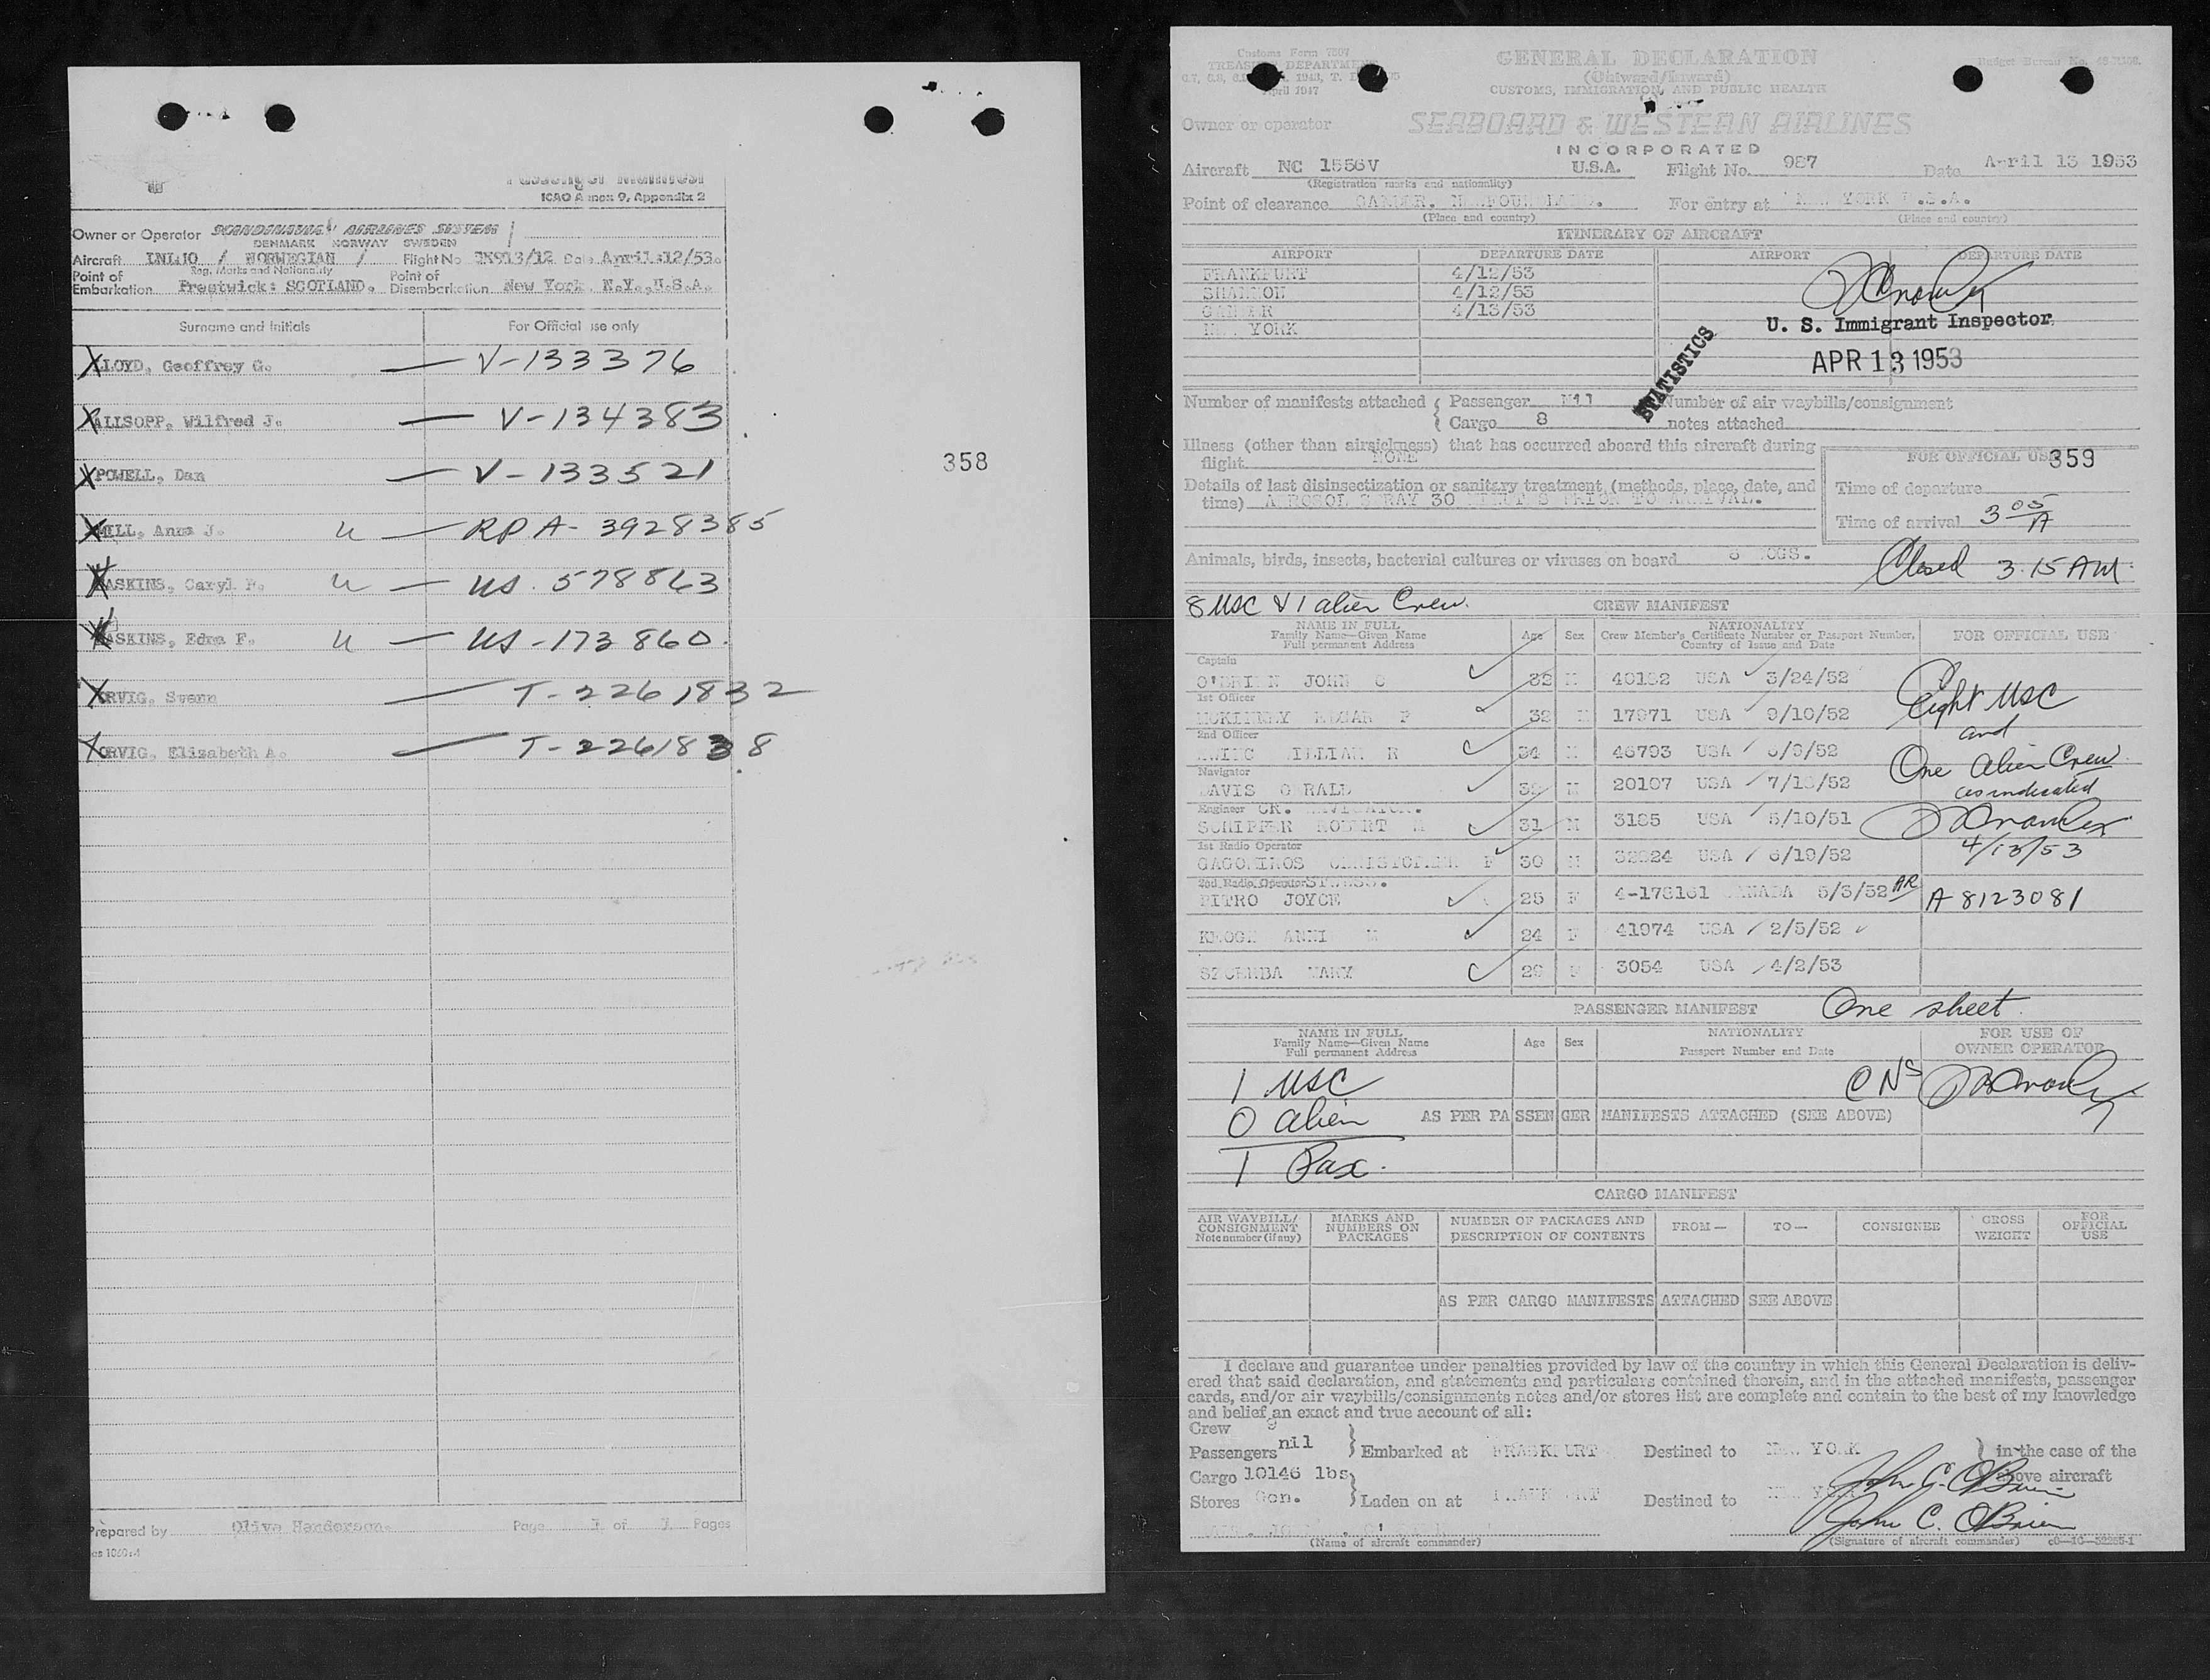 Passenger Manifest
ICAO Annex 9, Appendix 2
Owner or Operator SCANDINAVIAN AIRLINES SYSTEM
DENMARK NORWAY SWEDEN
Aircraft / NORWEGIAN / Flight No Date April:12/53.
Reg. Marks and Nationality
Point of Embarkation Prestwick: SCOTLAND. Point of Disembarkation New York. N.Y.,U.S.A.
Surname and Initials For Official use only
LLOYD, Geoffrey G. — V-133376
ALLSOPP, Wilfred J. — V-134383
POWELL, Dan — V-133521
Anna J. u — RPA-3928385
HASKINS, Caryl P. u — US. 578863
HASKINS, Edna F. u — US-173860.
ORVIG, Svenn — T-2261832
ORVIG, Elizabeth A. — T-2261838
358
Prepared by Olive Henderson. Page 1 of 1 Pages
Customs Form 7507
TREASURY DEPARTMENT
April 1947
GENERAL DECLARATION
(Outward/Inward)
CUSTOMS, IMMIGRATION, AND PUBLIC HEALTH
Owner or operator SEABOARD & WESTERN AIRLINES
INCORPORATED
Aircraft NC 1556V U.S.A. Flight No. 987 Date April 13 1953
(Registration marks and nationality)
Point of clearance GANDER. NEWFOUNDLAND. For entry at NEW YORK U.S.A.
(Place and country) (Place and country)
ITINERARY OF AIRCRAFT
AIRPORT DEPARTURE DATE AIRPORT DEPARTURE DATE
FRANKFURT 4/12/53
SHANNON 4/12/53
GANDER 4/13/53
NEW YORK
U. S. Immigrant Inspector
APR 13 1953
STATISTICS
Number of manifests attached { Passenger Nil Number of air waybills/consignment
Cargo 8 notes attached
Illness (other than airsickness) that has occurred aboard this aircraft during
flight NONE
FOR OFFICIAL USE
359
Details of last disinsectization or sanitary treatment (methods, place, date, and
time) AEROSOL SPRAY 30 MINUTES PRIOR TO ARRIVAL.
Time of departure
Time of arrival 3 05 A
Animals, birds, insects, bacterial cultures or viruses on board
Closed 3.15 AM
8 USC & 1 alien Crew.
CREW MANIFEST
NAME IN FULL
Family Name—Given Name
Full permanent Address
Age Sex
NATIONALITY
Crew Member's Certificate Number or Passport Number,
Country of Issue and Date
FOR OFFICIAL USE
Captain
O'BRIEN JOHN C 32 M 40182 USA 3/24/52
1st Officer
MCKINNEY EDGAR P M 17971 USA 9/10/52
2nd Officer
EWING WILLIAM R 34 M 46793 USA
Navigator
DAVIS GERALD M 20107 USA
Engineer OR. NAVIGATOR.
SCHIPPER ROBERT 31 M 3185 USA 5/10/51
1st Radio Operator
CHRISTOPHER F 30 M USA 6/19/52
2nd Radio Operator STWDSS.
PITRO JOYCE 25 F 4-178161 CANADA 5/3/52 AR A 8123081
KROGH ANNI M 24 F 41974 USA 2/5/52
MARY 29 F 3054 USA 4/2/53
Eight USC
and
One alien Crew
as indicated
4/13/53
PASSENGER MANIFEST One sheet
NAME IN FULL
Family Name—Given Name
Full permanent Address
Age Sex
NATIONALITY
Passport Number and Date
FOR USE OF
OWNER OPERATOR
1 USC
0 alien AS PER PASSENGER MANIFESTS ATTACHED (SEE ABOVE)
1 Pax.
CARGO MANIFEST
AIR WAYBILL/
CONSIGNMENT
Note number (if any)
MARKS AND
NUMBERS ON
PACKAGES
NUMBER OF PACKAGES AND
DESCRIPTION OF CONTENTS
FROM— TO— CONSIGNEE
GROSS
WEIGHT
FOR
OFFICIAL
USE
AS PER CARGO MANIFESTS ATTACHED SEE ABOVE
I declare and guarantee under penalties provided by law of the country in which this General Declaration is deliv-
ered that said declaration, and statements and particulars contained therein, and in the attached manifests, passenger
cards, and/or air waybills/consignments notes and/or stores list are complete and contain to the best of my knowledge
and belief an exact and true account of all:
Crew 9
Passengers nil } Embarked at FRANKFURT Destined to NEW YORK } in the case of the
Cargo 10146 lbs above aircraft
Stores Gen. } Laden on at FRANKFURT Destined to NEW YORK
John C. O'Brien
John C. O'Brien
(Name of aircraft commander) (Signature of aircraft commander)